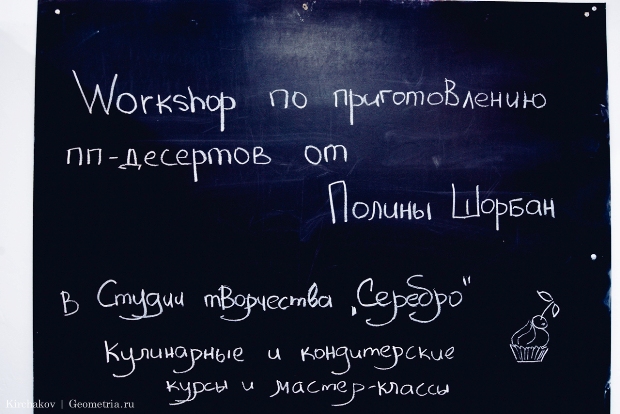 Workshop по приготовлению
пп-десертов от
Полины Шорбан
в Студии творчества „Серебро"
Кулинарные и кондитерские
курсы и мастер-классы
Kirchakov | Geometria.ru